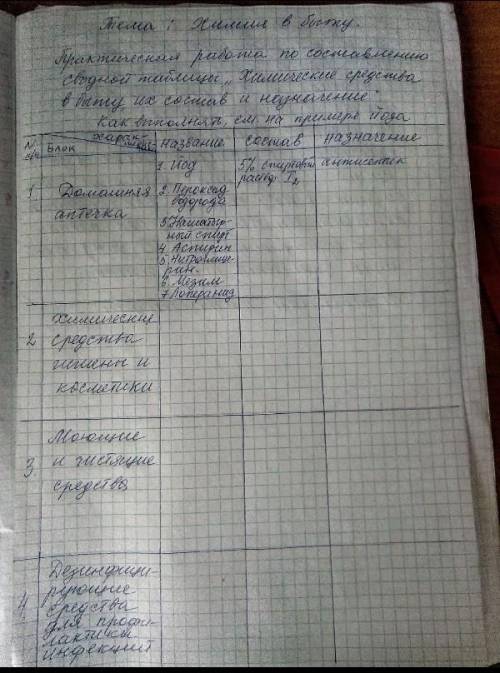 Тема: Химия в быту.
Практическая работа по составлению
сводной таблицы „Химические средства
в быту их состав и назначение"
как выполнять, см. на примере йода
N Блок характ название состав назначение
1. Йод 5% спиртовой антисептик
раствор I2
1 Домашняя 2. Пероксид
водорода
аптечка 3. Нашатыр-
ный спирт
4. Аспирин
5. Нитроглице-
рин.
6. Мезим
7. Лоперамид
Химические
2 средства
гигиены и
косметики
Моющие
3 и чистящие
средства
Дезинфици-
4 рующие
средства
для профи-
лактики
инфекций